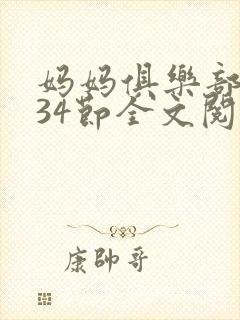 妈妈俱樂部
34節全文閱
康帥哥